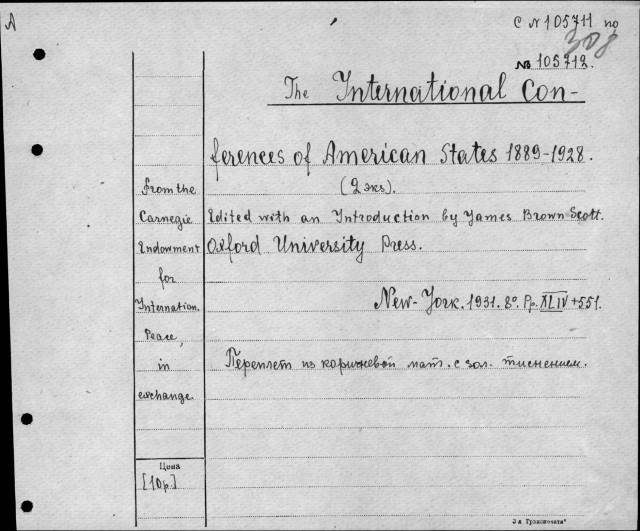 A
С № 105711 по
308
№ 105712.
The International Con-
ferences of American States 1889-1928.
(2 экз.).
From the
Carnegie
Endowment
for
Internation.
Peace,
in
exchange.
Edited with an Introduction by James Brown-Scott.
Oxford University Press.
New-York. 1931. 8°. Pp. XLIV+551.
Переплет из коричневой мат. с зол. тиснением.
Цена
[10р.]